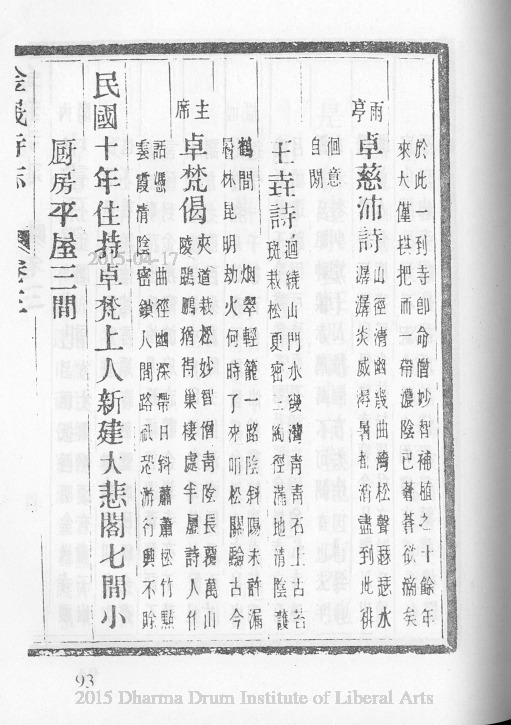 於此一到寺卽命僧妙智補植之十餘年
來大僅拱把而一帶濃陰已蒼蒼欲滴矣
雨亭 卓慈沛詩 山徑清幽幾曲灣松聲瑟瑟水
潺潺炎威溽暑都消盡到此徘
徊意
自閒
王垚詩 迴繞山門水幾灣靑靑石上古苔
斑栽松更密三徑滿地清陰護
鶴間 烟翠輕籠一路陰斜陽未許漏
林昆明劫火何時了來叩松關驗古今
主席 卓梵偈 夾道栽松妙智僧靑陰長覆萬山
陵鵾鵬猶得巢棲處半屬詩人作
話憑 曲徑幽深帶日斜蕭蕭松竹點
雲霞清陰密鎖人間路祇恐游行興不賒
民國十年住持卓梵上人新建大悲閣七間小
厨房平屋三間
金峩寺志 卷三
2015-04-17
93
2015 Dharma Drum Institute of Liberal Arts